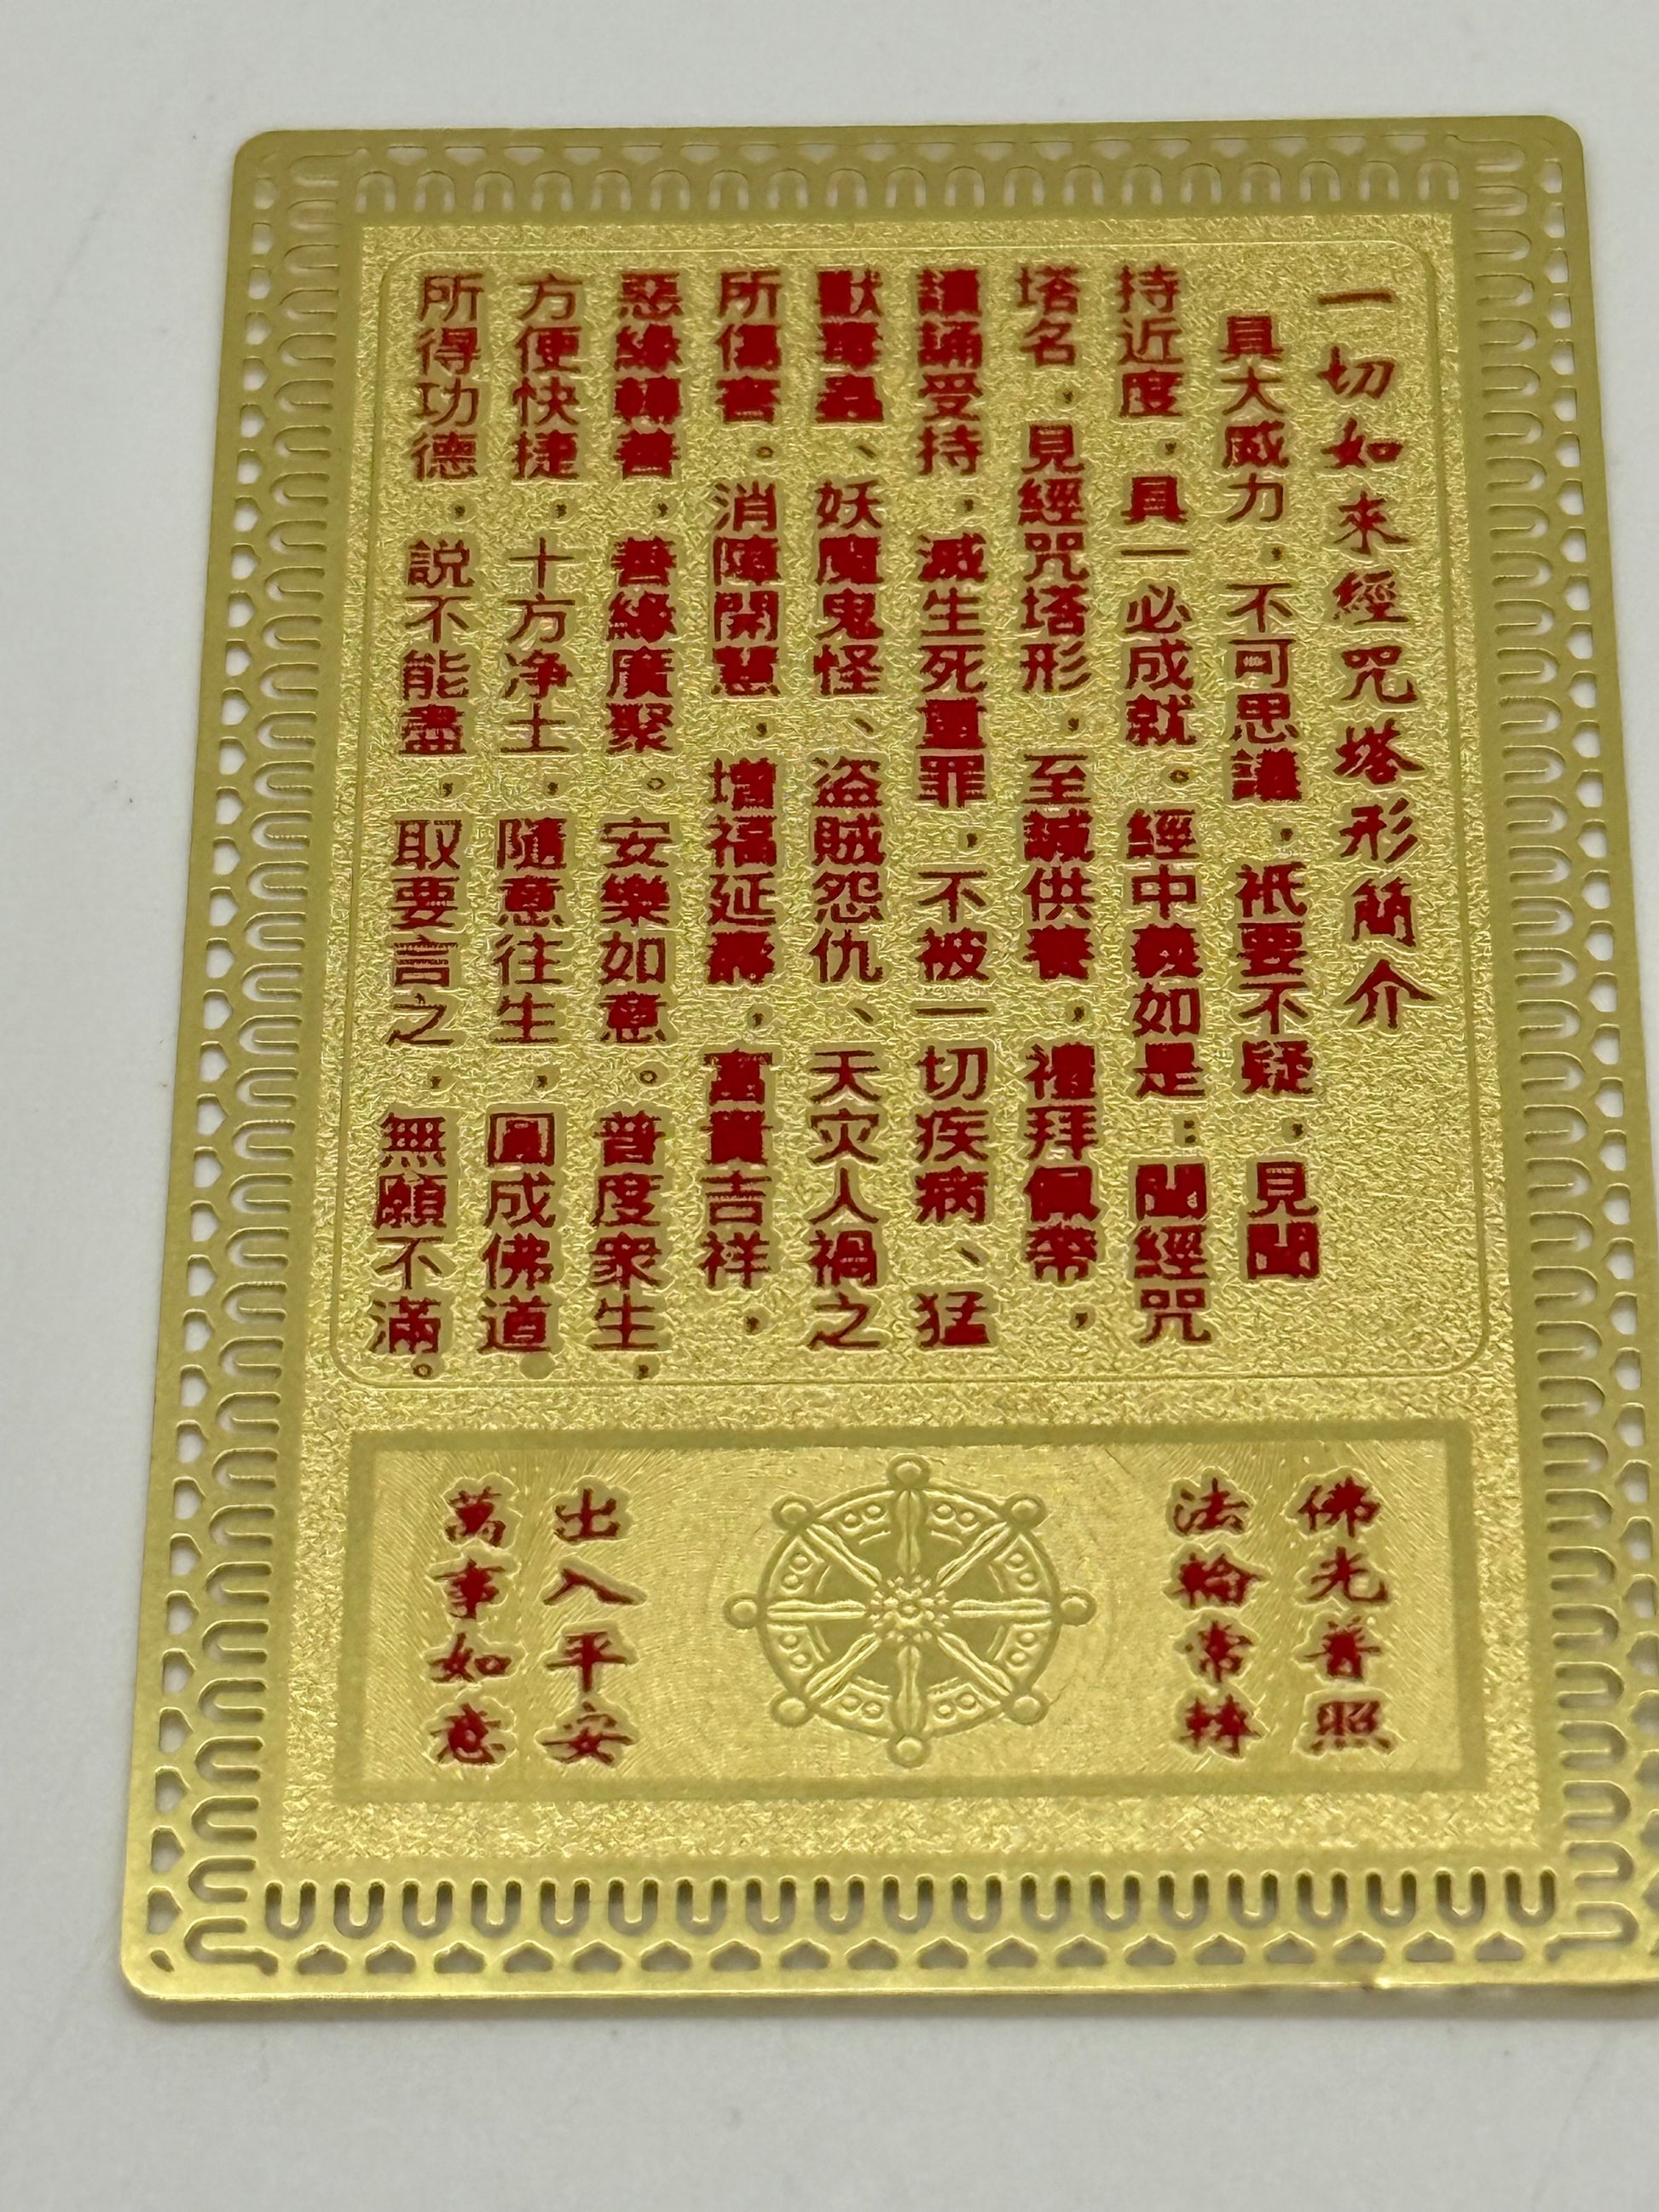 一切如來經咒塔形簡介
具大威力，不可思議，祇要不疑，見聞
持近度，具一必成就。經中義如是：聞經咒
塔名，見經咒塔形，至誠供養，禮拜佩帶，
讀誦受持，滅生死重罪，不被一切疾病、猛
獸毒蟲、妖魔鬼怪、盗賊怨仇、天灾人禍之
所傷害。消障開慧，增福延壽，富貴吉祥，
惡緣轉善，善緣廣聚。安樂如意。普度衆生，
方便快捷，十方净土，隨意往生，圓成佛道
所得功德，説不能盡，取要言之，無願不滿。
佛光普照
法輪常轉
出入平安
萬事如意